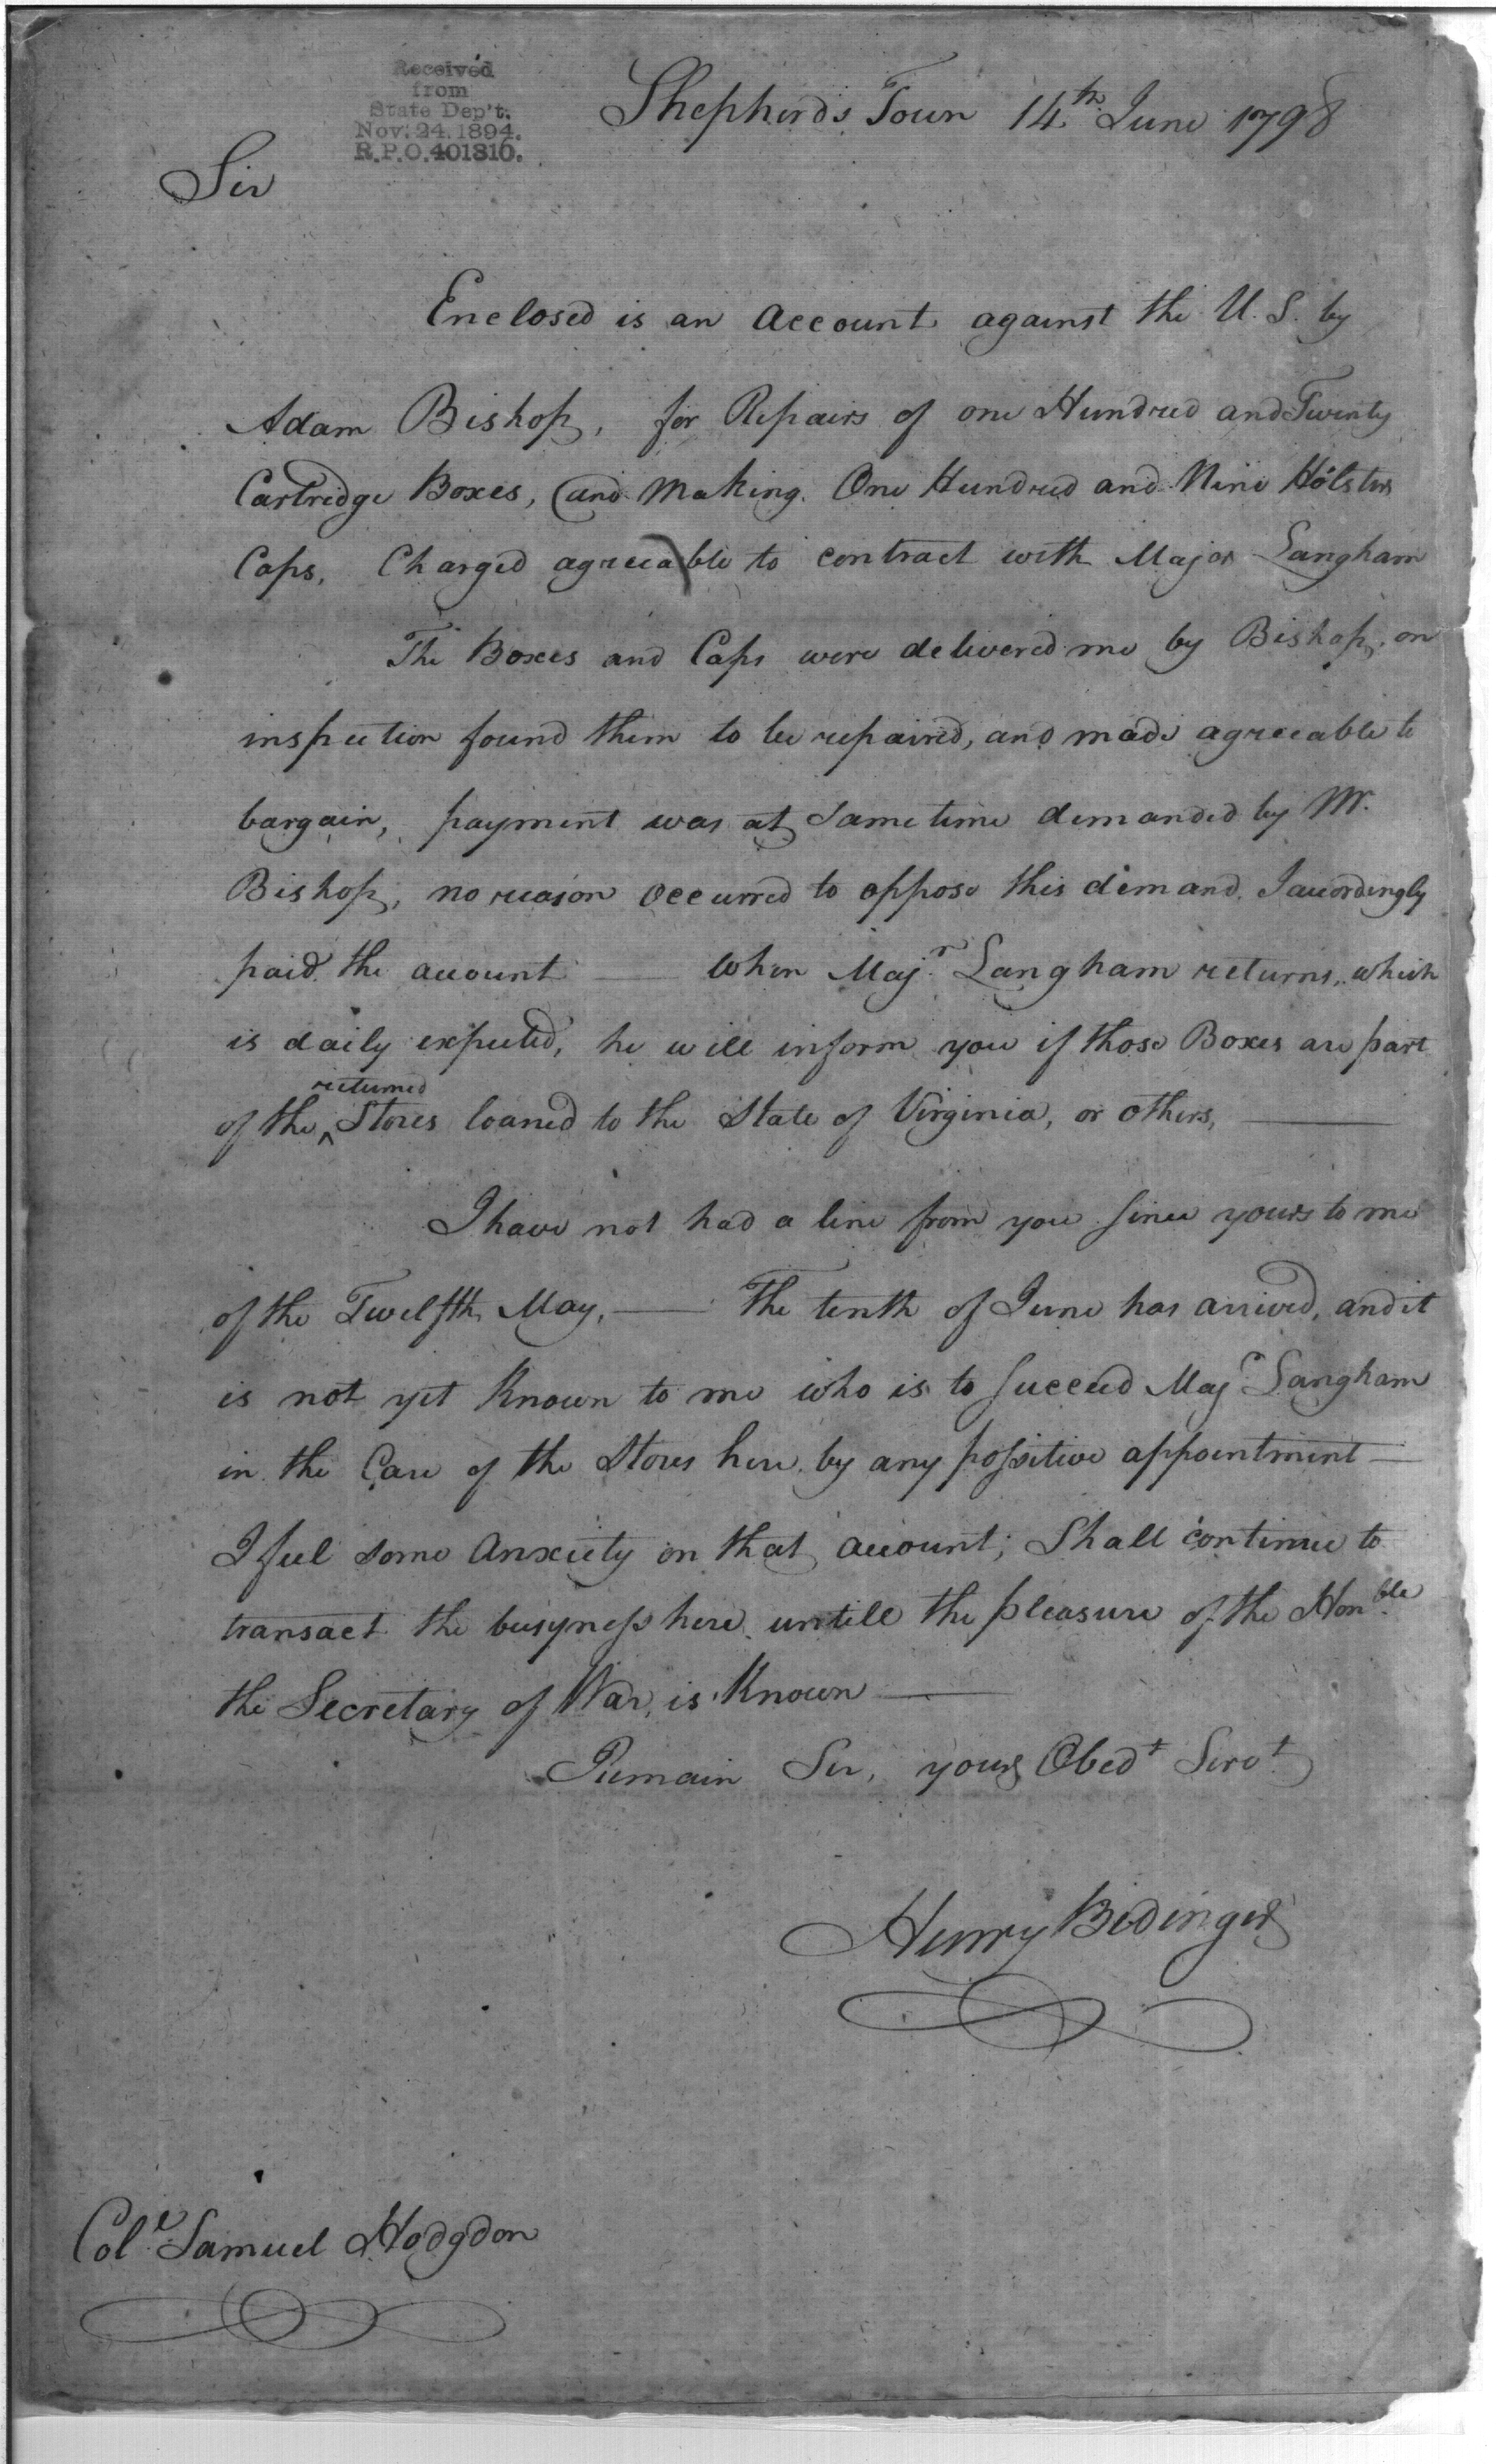 Received
from
State Dep't.
Nov. 24. 1894.
R.P.O. 401316.
Shepherd's Town 14th June 1798
Sir
Enclosed is an Account against the U. S. by
Adam Bishop, for Repairs of one Hundred and Twenty
Cartridge Boxes, (and Making One Hundred and Nine Holsters
Caps, Charged agreea)ble to contract with Major Langham
The Boxes and Caps were delivered me by Bishop, on
inspection found them to be repaired, and made agreeable to
bargain, payment was at same time demanded by Mr.
Bishop, no reason occurred to oppose this demand, I accordingly
paid the account —— When Majr. Langham returns, which
is daily expected, he will inform you if those Boxes are part
returned
of the ^ Stores loaned to the State of Virginia, or others, ——
I have not had a line from you since yours to me
of the Twelfth May, —— The tenth of June has arrived, and it
is not yet Known to me who is to succeed Majr. Langham
in the Care of the Stores here, by any possitive appointment —
I feel some Anxiety on that account; Shall continue to
transact the busyness here untill the pleasure of the Honble.
the Secretary of War, is Known ——
Remain Sir, yours Obedt Servt.
Henry Bedinger
Coll. Samuel Hodgdon